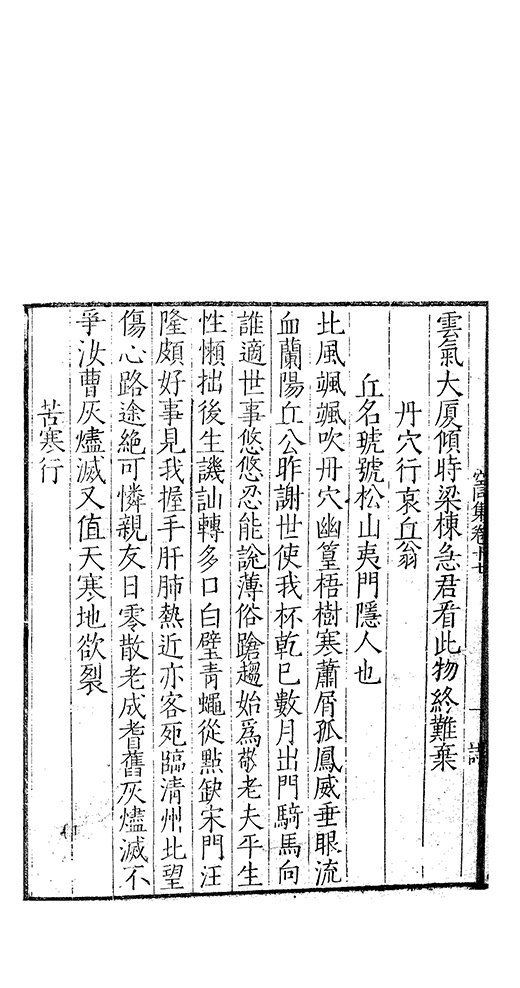 雲氣大厦傾時梁棟急君看此物終難棄
丹穴行哀丘翁
丘名琥號松山夷門隱人也
北風颯颯吹丹穴幽篁梧樹寒蕭屑孤鳳威垂眼流
血蘭陽丘公昨謝世使我杯乾已數月出門騎馬向
誰適世事悠悠忍能說薄俗蹌趨始爲敬老夫平生
性懶拙後生譏訕轉多口白璧青蠅從點缺宋門汪
隆頗好事見我握手肝肺熱近亦客死臨清州北望
傷心路途絕可憐親友日零散老成耆舊灰燼滅不
爭汝曹灰燼滅又值天寒地欲裂
苦寒行
空同集卷廿七